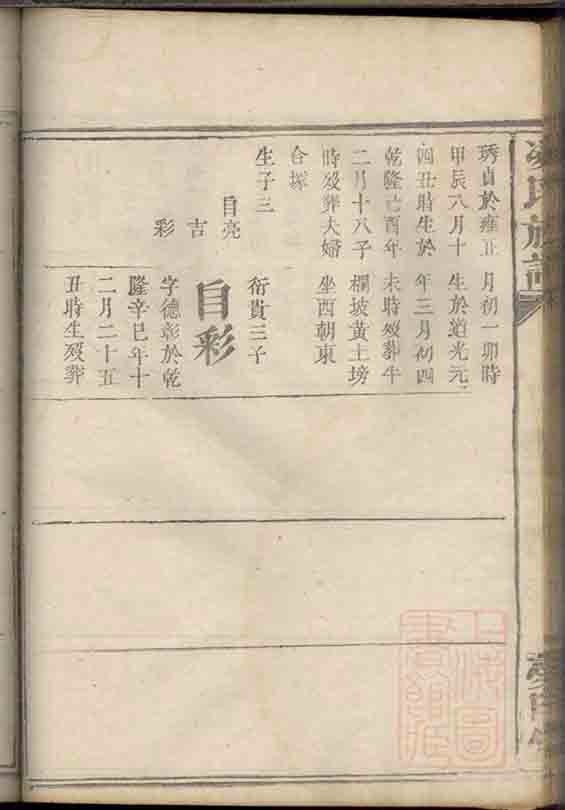 琇貞於雍正
甲辰八月十
四丑時生於
乾隆己酉年
二月十八子
時歿葬夫婦
合塚
生子三
目亮
吉
彩
月初一卯時
生於道光元
年三月初四
未時歿葬牛
欄坡黃土塝
坐西朝東
衍貴三子
目彩
字德彰於乾
隆辛巳年十
二月二十五
丑時生歿葬
氏族譜
上海圖
書館藏